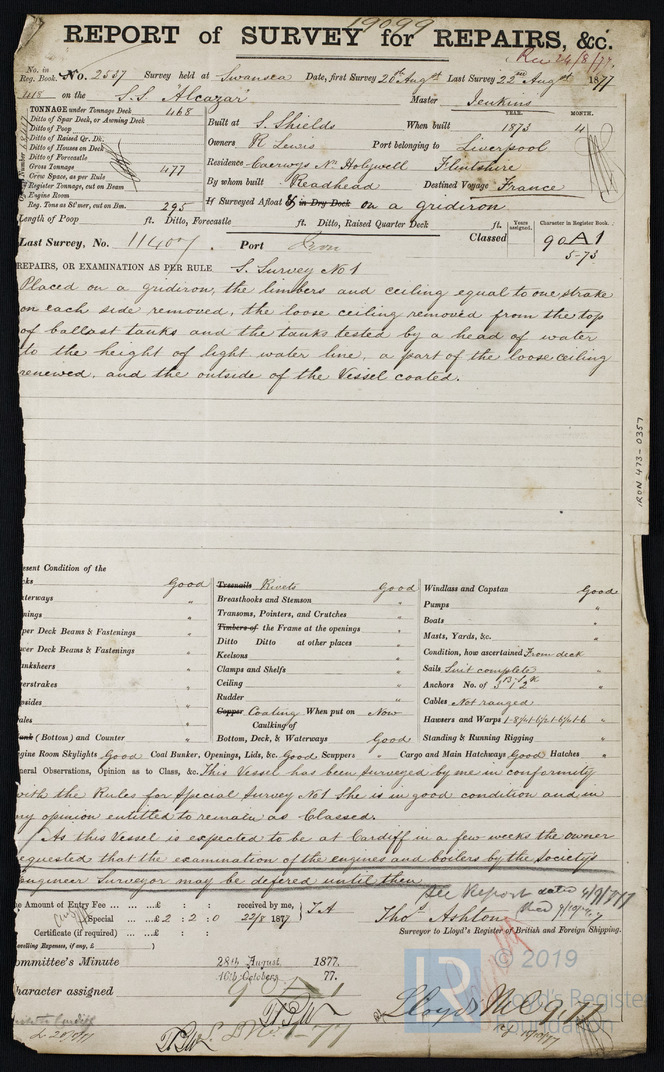 19099
REPORT of SURVEY for REPAIRS, &c.
No. in Reg. Book. No. 2337 Survey held at Swansea Date, first Survey 21st Augst Last Survey 22nd Augst 1877
418 on the S.S "Alcazar" Master Jenkins
TONNAGE under Tonnage Deck 468
Ditto of Spar Deck, or Awning Deck
Ditto of Poop
Ditto of Raised Qr. Dk.
Ditto of Houses on Deck
Ditto of Forecastle
Gross Tonnage 477
Crew Space, as per Rule
Register Tonnage, cut on Beam
Engine Room
Reg. Tons as St'mer, cut on Bm. 295
YEAR. MONTH.
Built at S. Shields When built 1873 4
Owners R Lewis Port belonging to Liverpool
Residence Caerwys Nr Holywell Flintshire
By whom built Readhead Destined Voyage France
If Surveyed Afloat or in Dry Dock on a gridiron
Length of Poop ft. Ditto, Forecastle ft. Ditto, Raised Quarter Deck ft.
Last Survey, No. 11407. Port Iron
Classed
Years assigned.
Character in Register Book.
90A1
5-73
REPAIRS, OR EXAMINATION AS PER RULE S. Survey No 1
Placed on a gridiron, the limbers and ceiling equal to one strake
on each side removed, the loose ceiling removed from the top
of ballast tanks and the tanks tested by a head of water
to the height of light water line, a part of the loose ceiling
renewed, and the outside of the Vessel coated.
IRON 473-0357
esent Condition of the
cks Good
terways "
nings "
per Deck Beams & Fastenings "
wer Deck Beams & Fastenings "
anksheers "
verstrakes "
psides "
ales "
(Bottom) and Counter "
Treenails Rivets Good
Breasthooks and Stemson "
Transoms, Pointers, and Crutches "
Timbers of the Frame at the openings "
Ditto Ditto at other places "
Keelsons "
Clamps and Shelfs "
Ceiling "
Rudder "
Copper Coating When put on Now
Caulking of
Bottom, Deck, & Waterways Good
Windlass and Capstan Good
Pumps "
Boats "
Masts, Yards, &c. "
Condition, how ascertained From deck
Sails Suit complete
Anchors No. of 3 B 1 S 2 K "
Cables Not ranged
Hawsers and Warps "
Standing & Running Rigging "
gine Room Skylights Good Coal Bunker, Openings, Lids, &c. Good Scuppers " Cargo and Main Hatchways Good Hatches "
neral Observations, Opinion as to Class, &c. This Vessel has been surveyed by me in conformity
with the Rules for Special Survey No 1 She is in good condition and in
my opinion entitled to remain as Classed.
As this Vessel is expected to be at Cardiff in a few weeks the owner
equested that the examination of the engines and boilers by the Society's
Engineer Surveyor may be defered until then
See Report dated 4/9/77
e Amount of Entry Fee ... ... £ : : received by me,
Special ... ... £ 2 : 2 : 0 22/8 1877 T A
Certificate (if required) ... £ : :
avelling Expenses, if any, £ )
Thos Ashton
Surveyor to Lloyd's Register of British and Foreign Shipping.
ommittee's Minute 28th August 1877.
16th October 77.
haracter assigned 90A1
Lloyd's MC 9.77
© 2019
LR
Lloyd's Register
Foundation